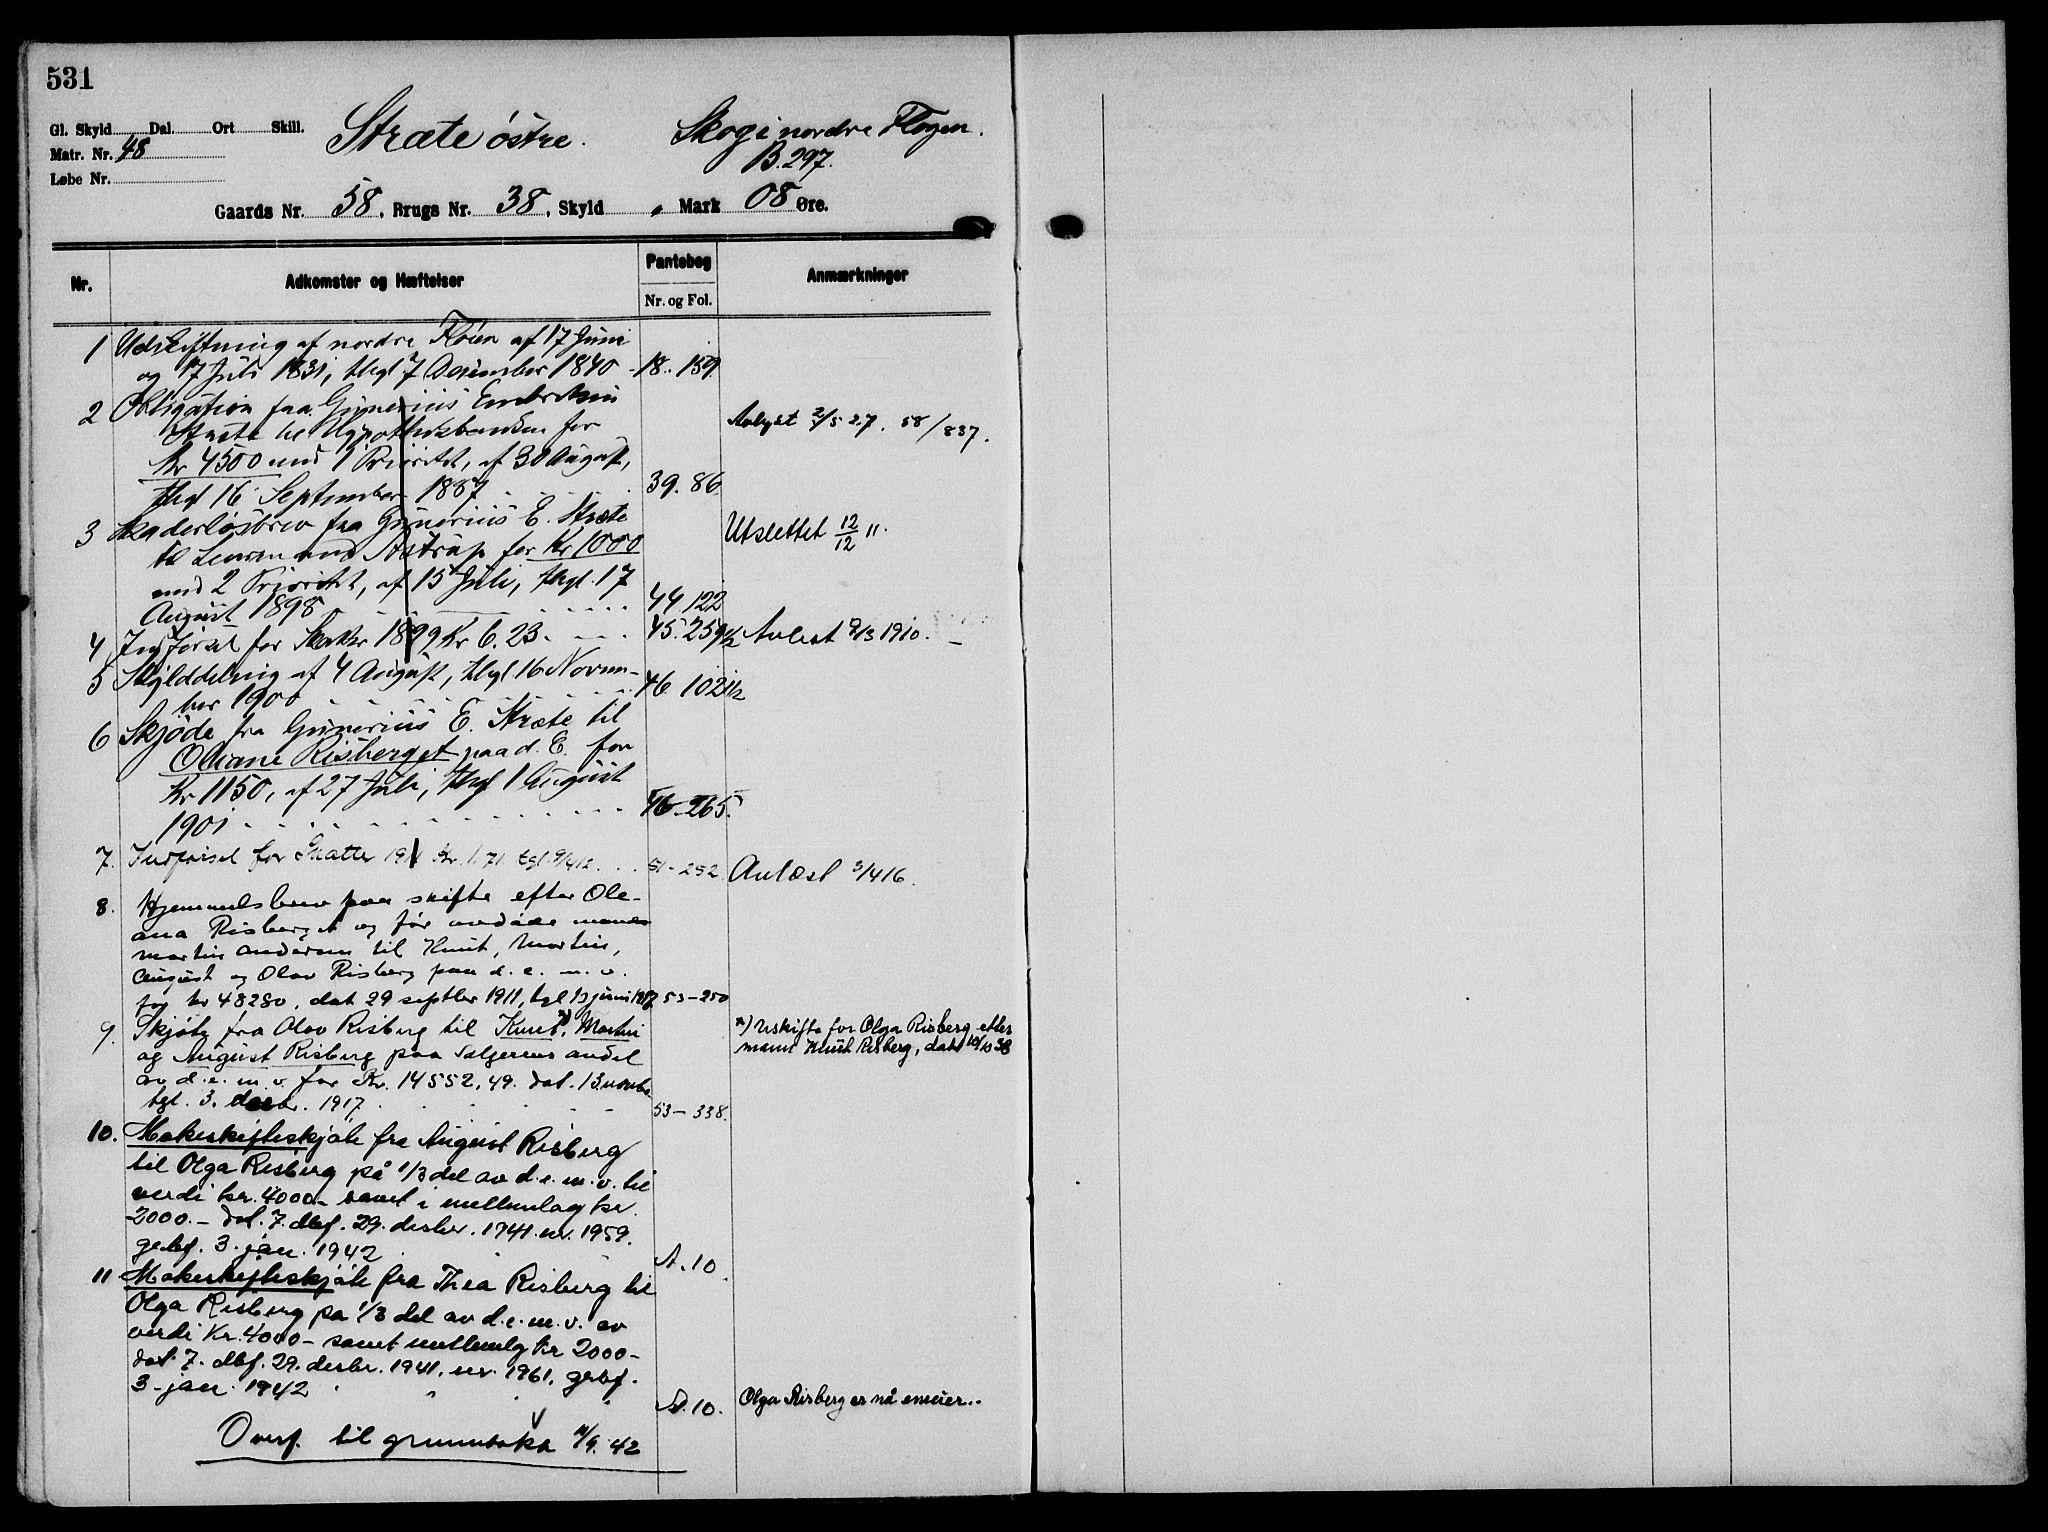 531
Gl. Skyld Dal. Ort Skill. Stræte østre. Skog i nordre Flogen.
Matr. Nr. 48 B. 297.
Løbe Nr.
Gaards Nr. 58, Brugs Nr. 38, Skyld , Mark 08 Øre.
Nr. Adkomster og Hæftelser Pantebog Anmærkninger
Nr. og Fol.
1 Udskiftning af nordre Fløien af 17 Juni
og 17 Juli 1831, thgl 7 December 1840 - 18.. 159.
2 Obligation fra Gunerius Embretsen
Stræte til Hypothekbanken for Avlyst 2/5 27. 58/837.
Kr 4500 med 1 Prioritet, af 30 August,
thgl 16 September 1887 39. 86.
3 Skadesløsbrev fra Gunerius E. Stræte
til Lensmand Astrup for Kr 1000 Utslettet 12/12 11.
med 2 Prioritet, af 15 Juli, thgl. 17
August 1898 44 122
4 Indførsel for Skatter 1899 Kr 6.23. 45. 259 1/2 Avlest 9/3 1910. -
5 Skylddeling af 4 August, thgl 16 Novem-
ber 1900 46 102 1/2
6 Skjøde fra Gunerius E. Stræte til
Oleane Risberget paa d. E. for
Kr 1150, af 27 Juli, thgl 1 August
1901 46 - 265.
7. Indførsel for Skatter 1911 Kr. 1.71 tgl. 9/4 12. 51 - 252. Avlæst 3/4 16.
8. Hjemmelsbrev paa skifte efter Ole-
ana Risberget og før avdøde mands
Martin Andersen til Knut, Martin,
August og Olav Risberg paa d. e. m. v.
for kr 48280, dat 29 septbr 1911, tgl 13 juni 1917 53 - 250
9. Skjøte fra Olav Risberg til Knut *), Martin *) Uskifte for Olga Risberg etter
og August Risberg paa Sælgerens andel mann Knut Risberg, dat 10/10 38
av d. e. m. v. for Kr. 14552,49. dat. 13 novbr.
tgl. 3. desbr. 1917. 53 - 338.
10. Makeskifteskjøte fra August Risberg
til Olga Risberg på 1/3 del av d. e. m. v. til
verdi kr. 4000 - samt i mellemlag kr.
2000. - dat. 7. dbf. 29. desber. 1941. nr. 1959.
gebf. 3. jan. 1942 A. 10.
11 Makeskifteskjøte fra Thea Risberg til
Olga Risberg på 1/3 del av d. e. m. v. av
verdi Kr. 4000 - samt mellemlg kr 2000 -
dat. 7. dbf. 29. desbr. 1941. nr. 1961, gebf.
3. jan. 1942 A. 10. Olga Risberg er nå eneeier..
Overf. til grunnboka 11/9. 42